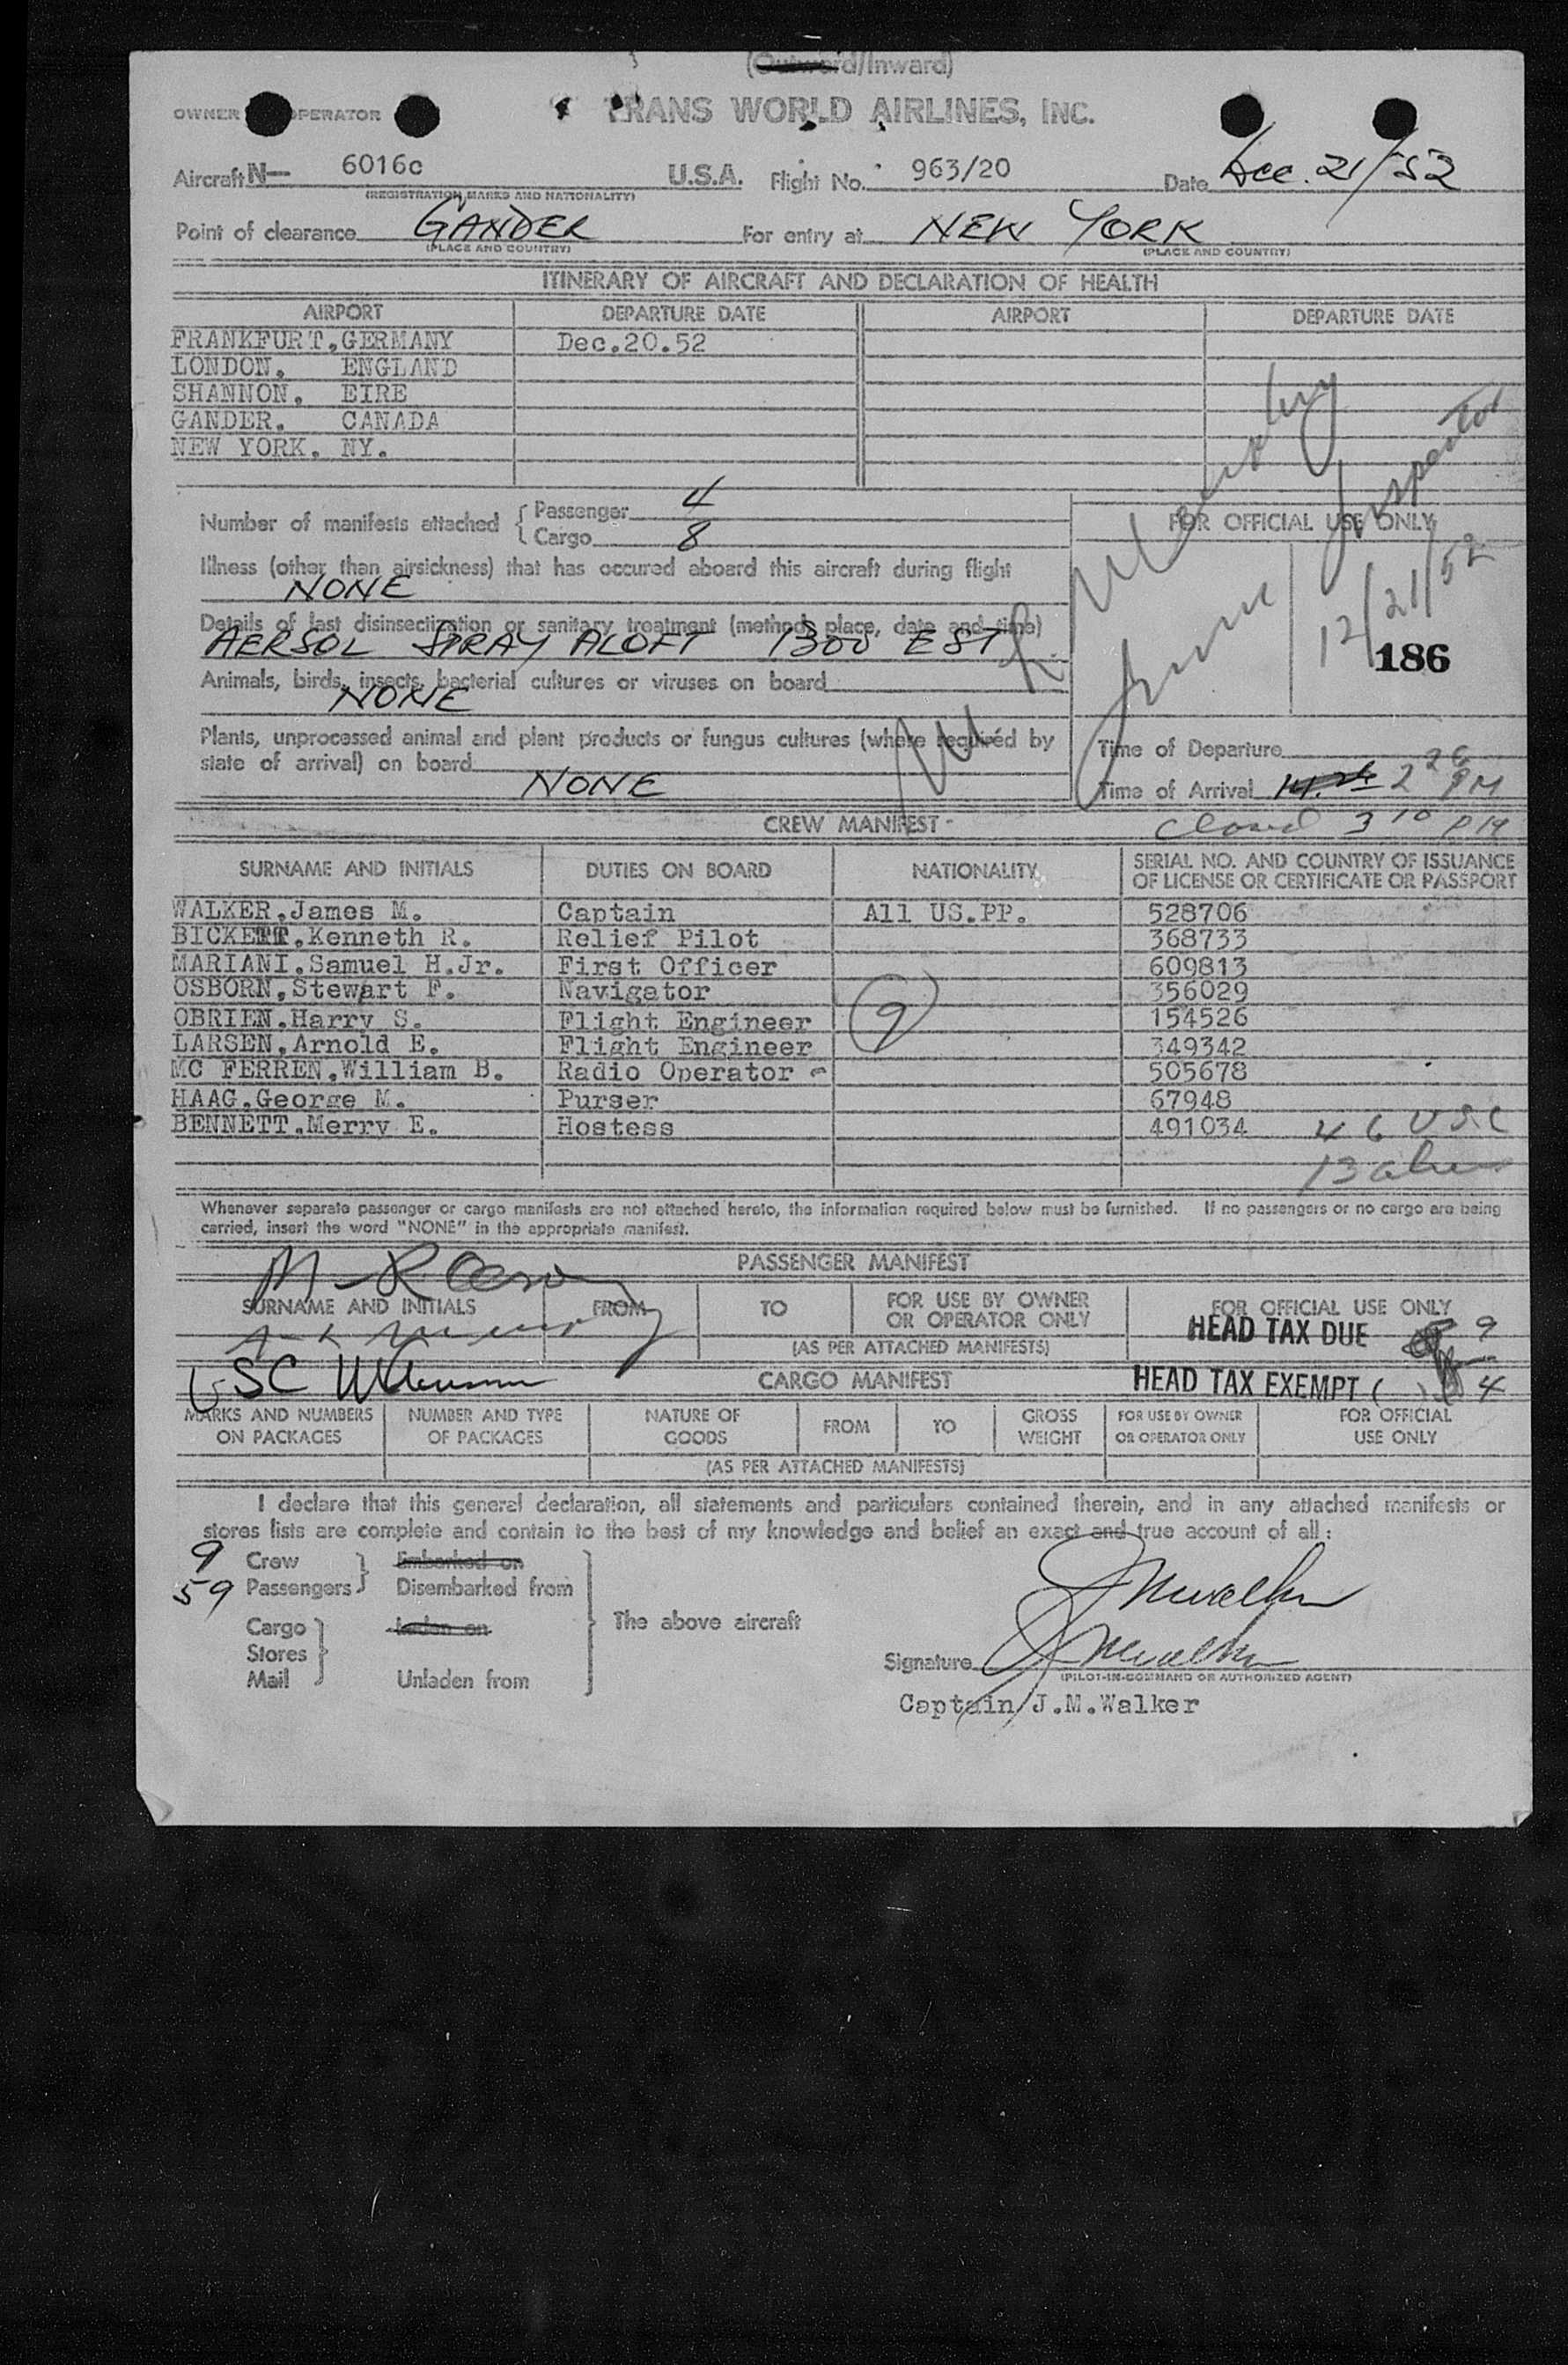 (Outward/Inward)
OWNER OPERATOR TRANS WORLD AIRLINES, INC.
Aircraft N— 6016c U.S.A. Flight No. 963/20 Date Dec. 21/52
(REGISTRATION MARKS AND NATIONALITY)
Point of clearance GANDER For entry at NEW YORK
(PLACE AND COUNTRY) (PLACE AND COUNTRY)
ITINERARY OF AIRCRAFT AND DECLARATION OF HEALTH
AIRPORT DEPARTURE DATE AIRPORT DEPARTURE DATE
FRANKFURT,GERMANY Dec.20.52
LONDON, ENGLAND
SHANNON, EIRE
GANDER. CANADA
NEW YORK. NY.
Number of manifests attached { Passenger 4
Cargo 8
FOR OFFICIAL USE ONLY
Inspector
12/21/52
186
Illness (other than airsickness) that has occured aboard this aircraft during flight
NONE
Details of last disinsectization or sanitary treatment (method, place, date and time)
AERSOL SPRAY ALOFT 1300 EST
Animals, birds, insects, bacterial cultures or viruses on board
NONE
Plants, unprocessed animal and plant products or fungus cultures (where required by
state of arrival) on board
NONE
Time of Departure
Time of Arrival 2 26 PM
Closed 3 10 PM
CREW MANIFEST
SURNAME AND INITIALS DUTIES ON BOARD NATIONALITY SERIAL NO. AND COUNTRY OF ISSUANCE
OF LICENSE OR CERTIFICATE OR PASSPORT
WALKER,James M. Captain All US.PP. 528706
BICKETT,Kenneth R. Relief Pilot 368733
MARIANI.Samuel H.Jr. First Officer 609813
OSBORN,Stewart F. Navigator 356029
OBRIEN.Harry S. Flight Engineer 9 154526
LARSEN,Arnold E. Flight Engineer 349342
MC FERREN,William B. Radio Operator 505678
HAAG,George M. Purser 67948
BENNETT.Merry E. Hostess 491034 46 USC
13 alien
Whenever separate passenger or cargo manifests are not attached hereto, the information required below must be furnished. If no passengers or no cargo are being
carried, insert the word "NONE" in the appropriate manifest.
PASSENGER MANIFEST
SURNAME AND INITIALS FROM TO FOR USE BY OWNER
OR OPERATOR ONLY FOR OFFICIAL USE ONLY
(AS PER ATTACHED MANIFESTS)
HEAD TAX DUE 9
CARGO MANIFEST
HEAD TAX EXEMPT ( 4
MARKS AND NUMBERS
ON PACKAGES NUMBER AND TYPE
OF PACKAGES NATURE OF
GOODS FROM TO GROSS
WEIGHT FOR USE BY OWNER
OR OPERATOR ONLY FOR OFFICIAL
USE ONLY
(AS PER ATTACHED MANIFESTS)
I declare that this general declaration, all statements and particulars contained therein, and in any attached manifests or
stores lists are complete and contain to the best of my knowledge and belief an exact and true account of all:
9 Crew Embarked on
59 Passengers Disembarked from
Cargo Laden on The above aircraft
Stores
Mail Unladen from
Signature JMWalker
(PILOT-IN-COMMAND OR AUTHORIZED AGENT)
Captain J.M.Walker